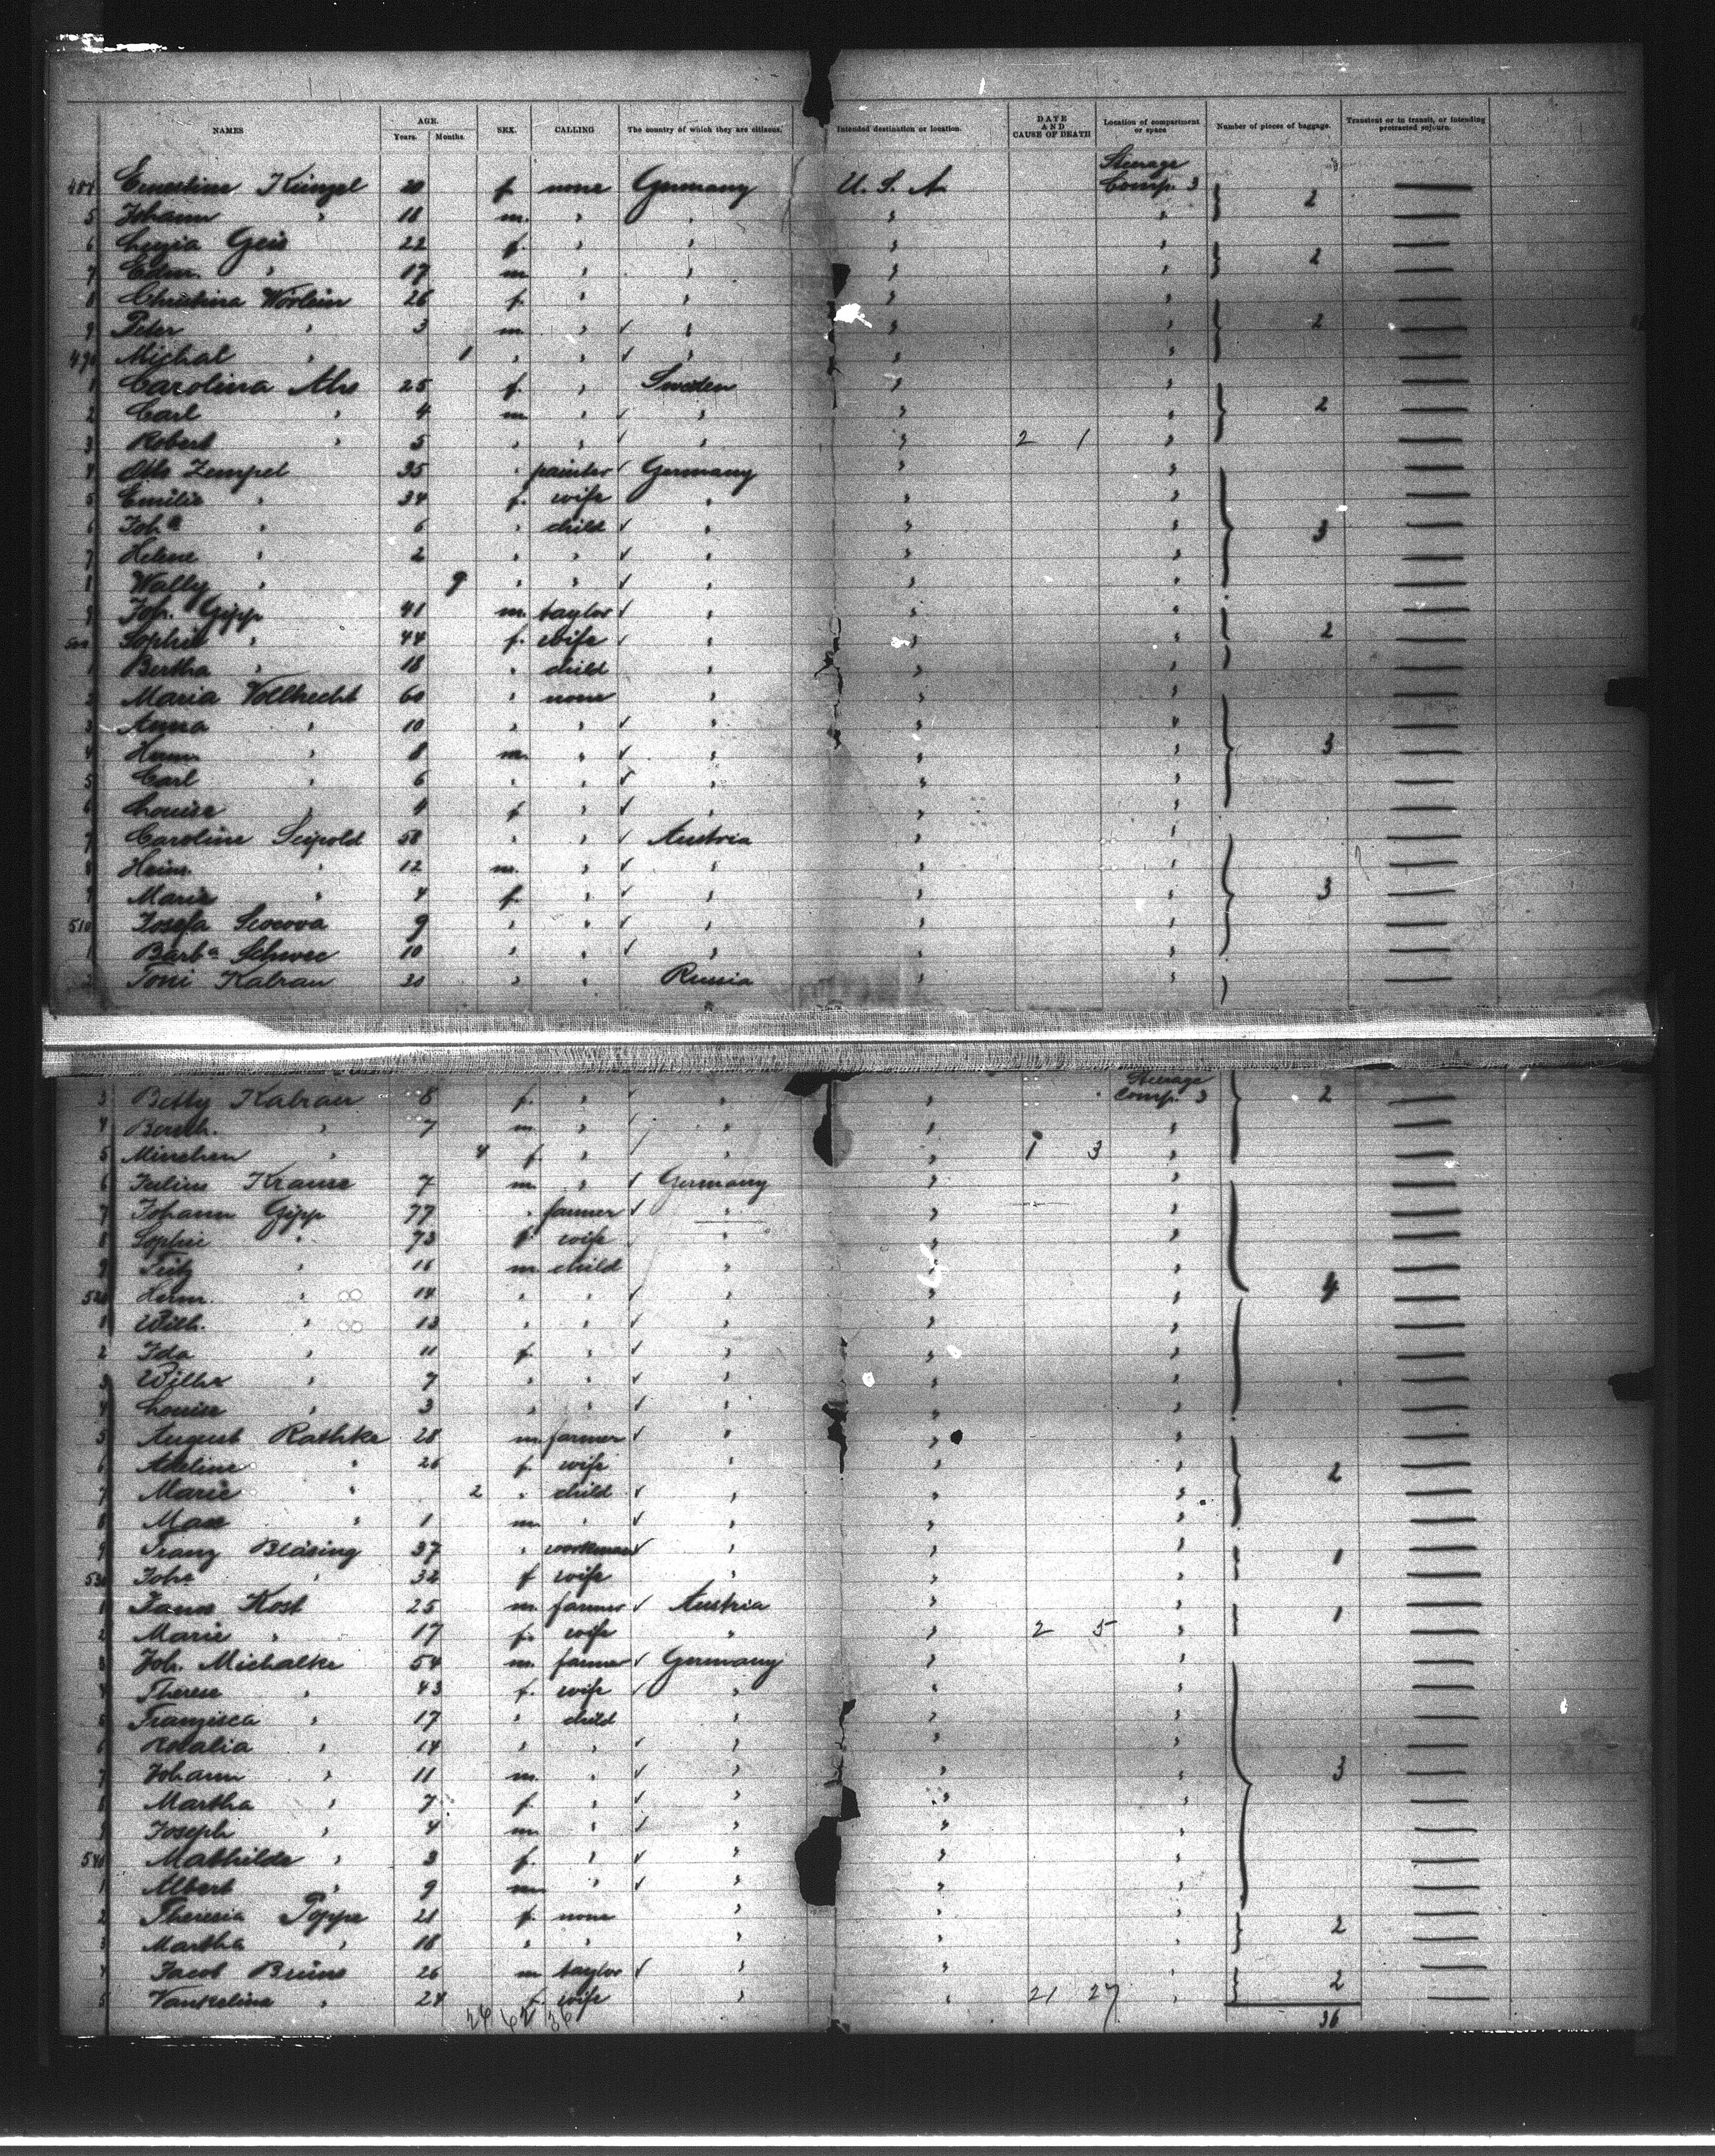 NAMES AGE. Years. Months. SEX. CALLING The country of which they are citizens. Intended destination or location. DATE AND CAUSE OF DEATH Location of compartment or space Number of pieces of baggage. Transient or in transit, or intending protracted sojourn.
Steerage
Ernestine Künzel 20 f. none Germany U. S. A. Comp. 3 2
5 Johann " 18 m. " " " "
6 Geis 22 f. " " " "
7 " 17 m. " " " " 2
8 Christina Wörlein 26 f. " " " "
9 Peter " 3 m. " " " " 2
490 Michal " 1 " " " " "
1 Carolina 25 f. " Sweden " "
2 Carl " 4 m. " " " " 2
3 Robert " 5 " " " " 2 1 "
4 Otto Zempel 35 " painter Germany " "
5 Emilie " 34 f. wife " " "
6 Joha " 6 " child " " " 3
7 Helene " 2 " " " " "
8 Wally " 9 " " " " "
9 Joh. Gipp 41 m. taylor " " "
500 Sophie " 44 f. wife " " " 2
1 Bertha " 18 " child " " "
2 Maria Vollbrecht 60 " none " " "
3 Anna " 10 " " " " "
4 Herm. " 8 m. " " " " 3
5 Carl " 6 " " " " "
6 Louise " 4 f. " " " "
7 Caroline Seipold 58 " " Austria " "
8 Heinr. " 12 m. " " " "
9 Marie " 4 f. " " " " 3
510 Josefa 9 " " " " "
1 Barba Schwec 10 " " " " "
2 Toni Kalran 30 " " Russia " "
Steerage
3 Betty Kalran 8 f. " " " Comp. 3 2
4 " 7 m. " " " "
5 Minchen " 4 f. " " " 1 3 "
6 Julius Krause 7 m. " Germany " "
7 Johann Gipp 77 " farmer " " "
8 Sophie " 73 f. wife " " "
9 Fritz " 16 m. child " " "
520 Herm. " 14 " " " " " 4
1 Wilh. " 13 " " " " "
2 Ida " 11 f. " " " "
3 " 7 " " " " "
4 Louise " 3 " " " " "
5 August Rathke 28 m. farmer " " "
6 Adeline " 26 f. wife " " " 2
7 Marie " 2 " child " " "
8 Max " 1 m. " " " "
9 Franz Bläsing 37 " workman " " " 1
530 " 32 f wife " " "
1 Kost 25 m. farmer Austria " " 1
2 Marie " 17 f. wife " " 2 5 "
3 Joh. Michalke 54 m. farmer Germany " "
4 Therese " 43 f. wife " " "
5 Franzisca " 17 " child " " "
6 Rosalia " 14 " " " " "
7 Johann " 11 m. " " " " 3
8 Martha " 7 f. " " " "
9 Joseph " 4 m. " " " "
540 Mathilde " 3 f. " " " "
1 Albert " 9 m. " " " "
2 Theresia Poppe 21 f. none " " " 2
3 Martha " 18 " " " " "
4 Jacob Bruns 26 m taylor " " " 2
5 " 24 f. wife " " 21 27 "
36